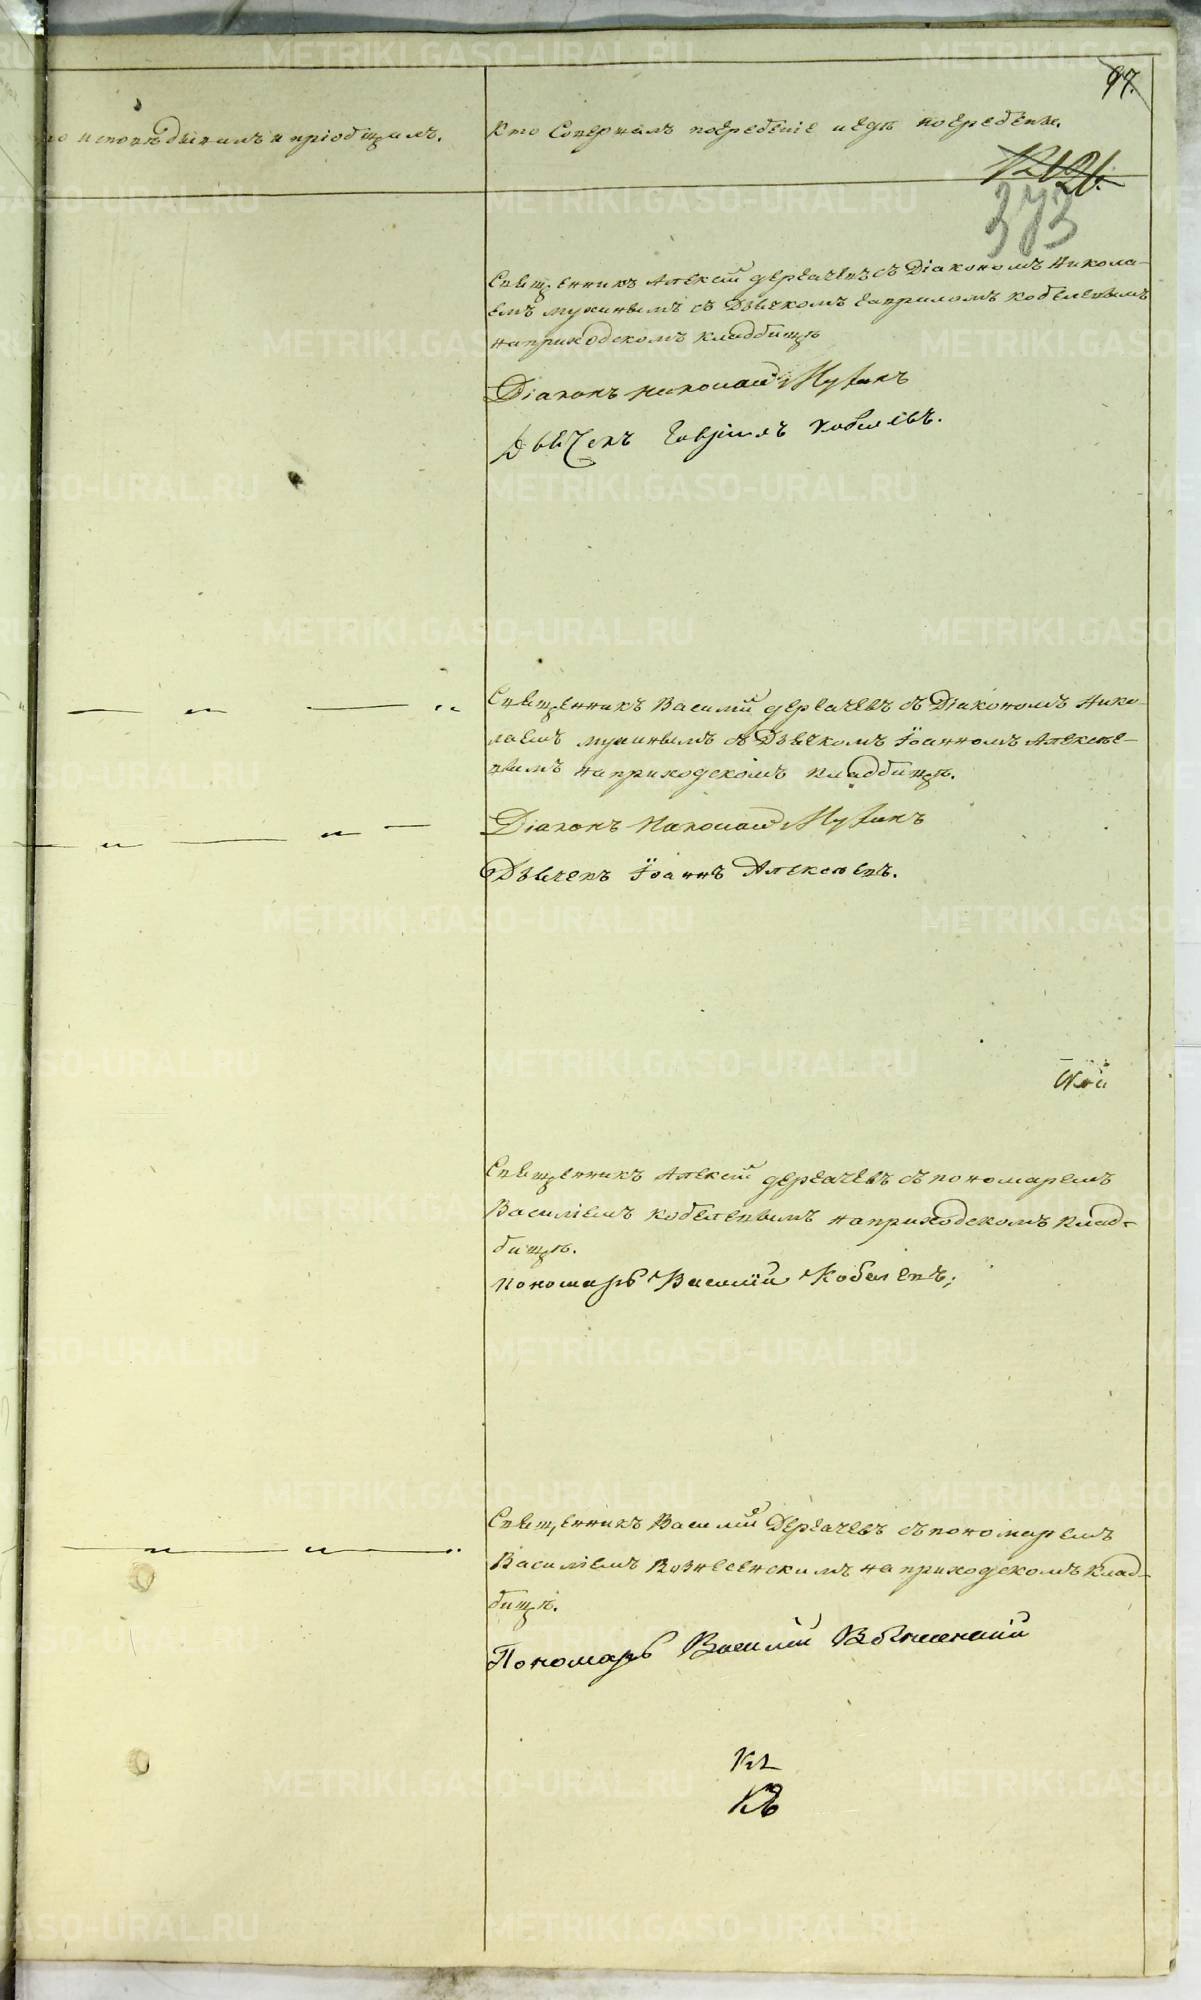 97.
Кто исповѣдывалъ и пріобщалъ.
Кто Совершалъ погребеніе и гдѣ погребены.
373
Священникъ Алексій Дергачевъ съ Діакономъ Никола-
емъ Мухинымъ съ Дьячкомъ Гавриломъ Кобелевымъ
на приходскомъ кладбищѣ
Діаконъ Николай Мухинъ
Дьячекъ Гавріилъ Кобелевъ.
Священникъ Василій Дергачевъ съ Діакономъ Нико-
лаемъ Мухинымъ съ Дьячкомъ Іоанномъ Алексѣе-
вымъ на приходскомъ кладбищѣ.
Діаконъ Николай Мухинъ
Дьячекъ Іоаннъ Алексѣевъ.
Священникъ Алексій Дергачевъ съ пономаремъ
Василіемъ Кобелевымъ на приходскомъ клад-
бищѣ.
Пономарь Василій Кобелевъ;
Священникъ Василій Дергачевъ съ пономаремъ
Василіемъ Вознесенскимъ на приходскомъ клад-
бищѣ.
Пономарь Василій Вознесенскій
METRIKI.GASO-URAL.RU